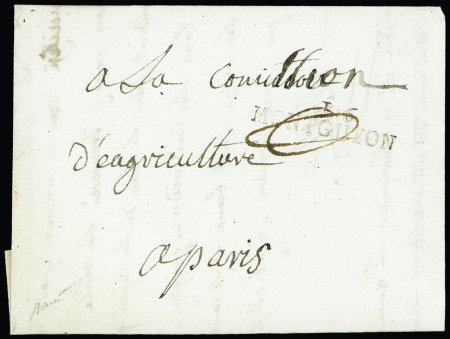 a La Comission
16
MONTGUYON
d'eagriculture
a paris